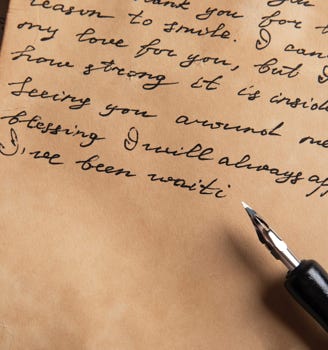 Thank you for
reason to smile. I can
my love for you, but I
how strong it is insid
Seeing you around me
blessing I will always ap
I've been waiti